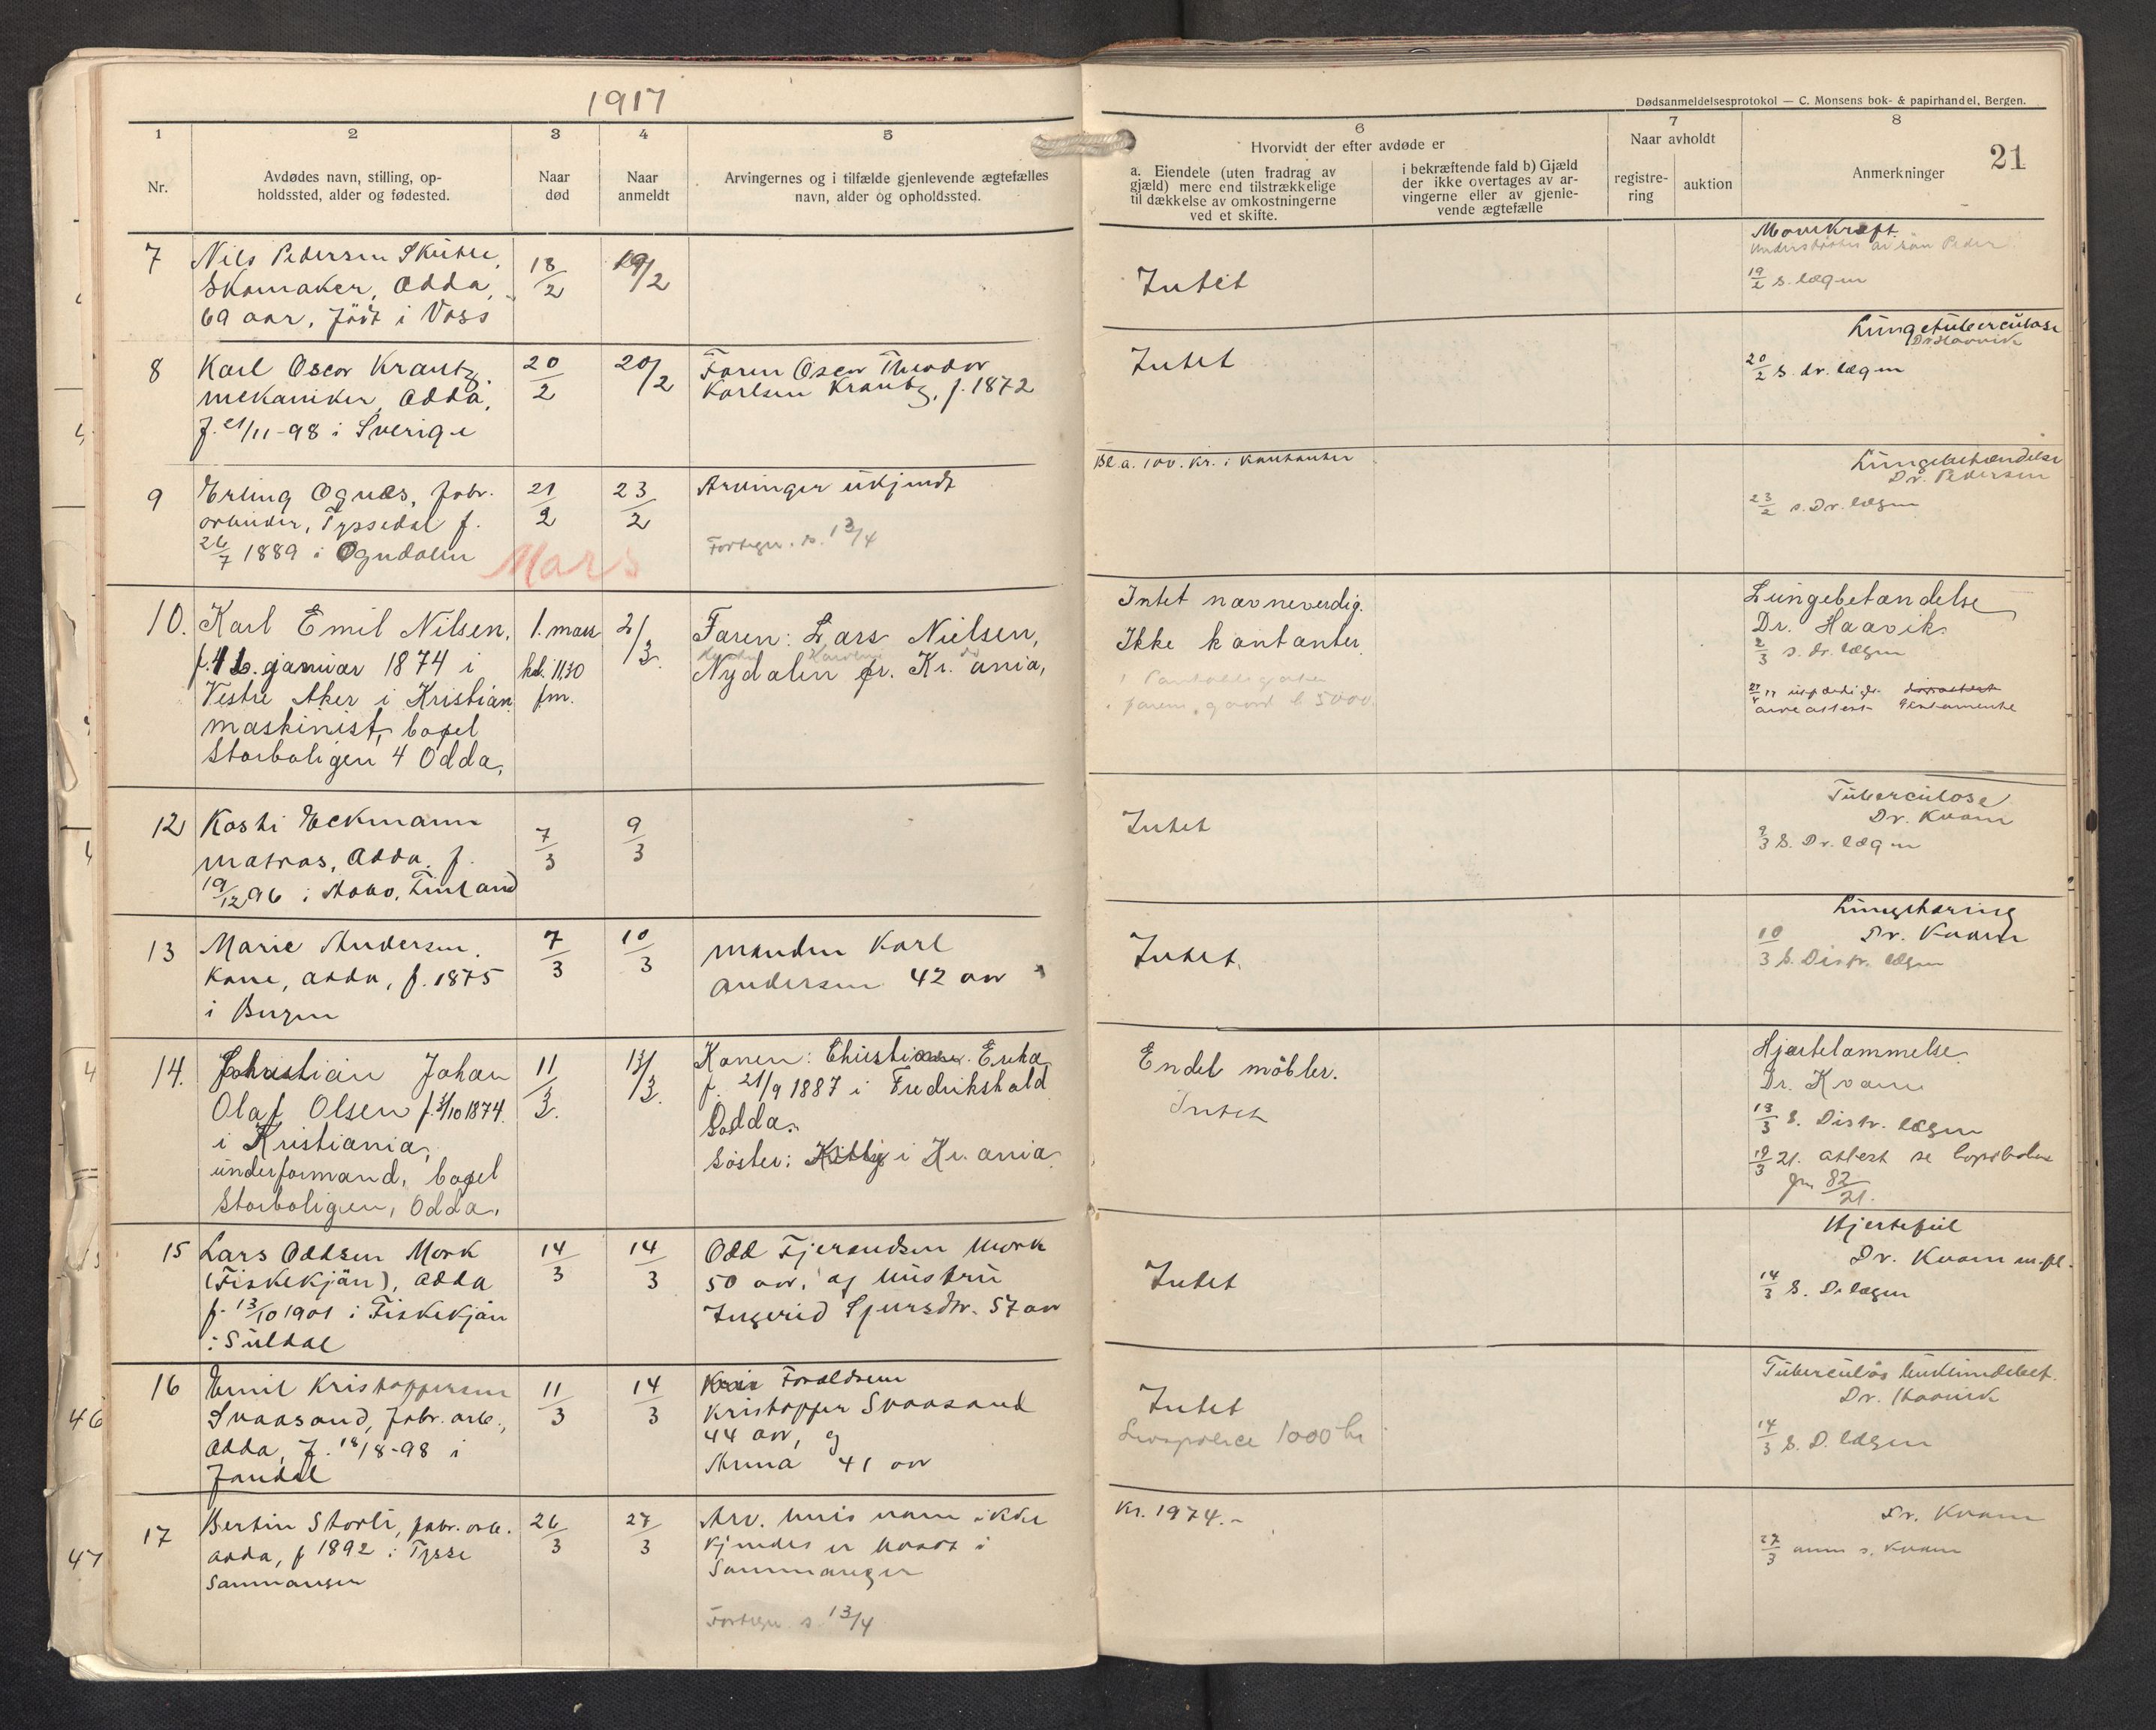 1917
Dødsanmeldelsesprotokol — C. Monsens bok- & papirhandel, Bergen.
21
1 2 3 4 5 6 7 8
Nr.
Avdødes navn, stilling, op-
holdssted, alder og fødested.
Naar
død
Naar
anmeldt
Arvingernes og i tilfælde gjenlevende ægtefælles
navn, alder og opholdssted.
Hvorvidt der efter avdøde er
a. Eiendele (uten fradrag av
gjæld) mere end tilstrækkelige
til dækkelse av omkostningerne
ved et skifte.
i bekræftende fald b) Gjæld
der ikke overtages av ar-
vingerne eller av gjenle-
vende ægtefælle
Naar avholdt
registre-
ring
auktion
Anmerkninger
7
Nils Pedersen Skutle,
Skomaker, Odda,
69 aar, født i Voss
18/2
19/2
Intet
Mavekræft.
19/2 s. lægen
8
Karl Oscar Krantz,
mekaniker, Odda,
f. 21/11-98 i Sverige
20/2
20/2
Faren Oscar Theodor
Karlsen Krantz, f. 1872
Intet
Lungetuberculose
Dr Haavik
20/2 s. dr. lægen
9
Erling Ognæs, fabr.
arbeider, Tyssedal f.
26/7 1889 i Ogndalen
21/2
23/2
Arvinger ukjendt
Fortegn. s. 13/4
Bl.a. 100. kr. i kontanter
Lungebetændelse
Dr. Pedersen
23/2 s. Dr. lægen
Mars
10.
Karl Emil Nilsen,
januar 1874 i
Vestre Aker i Kristian.
maskinist, bopel
Storboligen 4 Odda,
1. mars
kl. 11.30
fm.
2/3.
Faren: Lars Nielsen,
Nydalen pr. Kr.ania,
Intet navneverdig.
Ikke kontanter.
farens gaard 5000.
Lungebetændelse
Dr. Haavik
2/3 s. dr. lægen
arveattest
12
Kosti Eckmann
matros, Odda, f.
19/12 96 i Aabo, Finland
7/3
9/3
Intet
Tuberculose
Dr. Kvam
9/3 S. Dr. lægen
13
Marie Andersen.
Kone, Odda, f. 1875
i Bergen
7/3
10/3
manden Karl
Andersen 42 aar
Intet.
Lungetæring
Dr. Kvam
10/3 S. Distr. lægen
14.
Johan
Olaf Olsen f. 3/10 1874.
i Kristiania,
underformand, bopel
Storboligen, Odda.
11/3.
13/3.
Konen: Erika
f. 21/9 1887 i Fredrikshald
Odda.
Søster: Kitty i Kr.ania
Endel møbler.
Intet
Hjertelammelse.
Dr. Kvam
13/3 S. Distr. lægen
19/3 21. attest se kopiboken
82/21.
15
Lars Oddsen Mork
(Fiskekjøn), Odda
f. 13/10 1901 i Fiskekjøn
i Suldal
14/3
14/3
Odd Fjerandsen Mork
50 aar, og hustru
Ingerid Sjursdtr. 57 aar
Intet
Hjertefeil
Dr. Kvam
14/3 S. D. lægen
16
Emil Kristoffersen
Svaasand, fabr. arb.,
Odda, f. 18/8-98 i
Jondal
11/3
14/3
Forældrene
Kristoffer Svaasand
44 aar, og
Anna 41 aar
Intet
Livspolice 1000 kr
Tuberculøs
Dr. Haavik
14/3 S. D. lægen
17
Bertin Storli, fabr. arb.
Odda, f 1892 i Tysse
Samnanger
26/3
27/3
Arv. hvis navn ikke
kjendes er bosat i
Samnanger
Fortegn s. 13/4
Kr. 1974.-
Dr. Kvam
27/3 anm s. Kvam
46
47